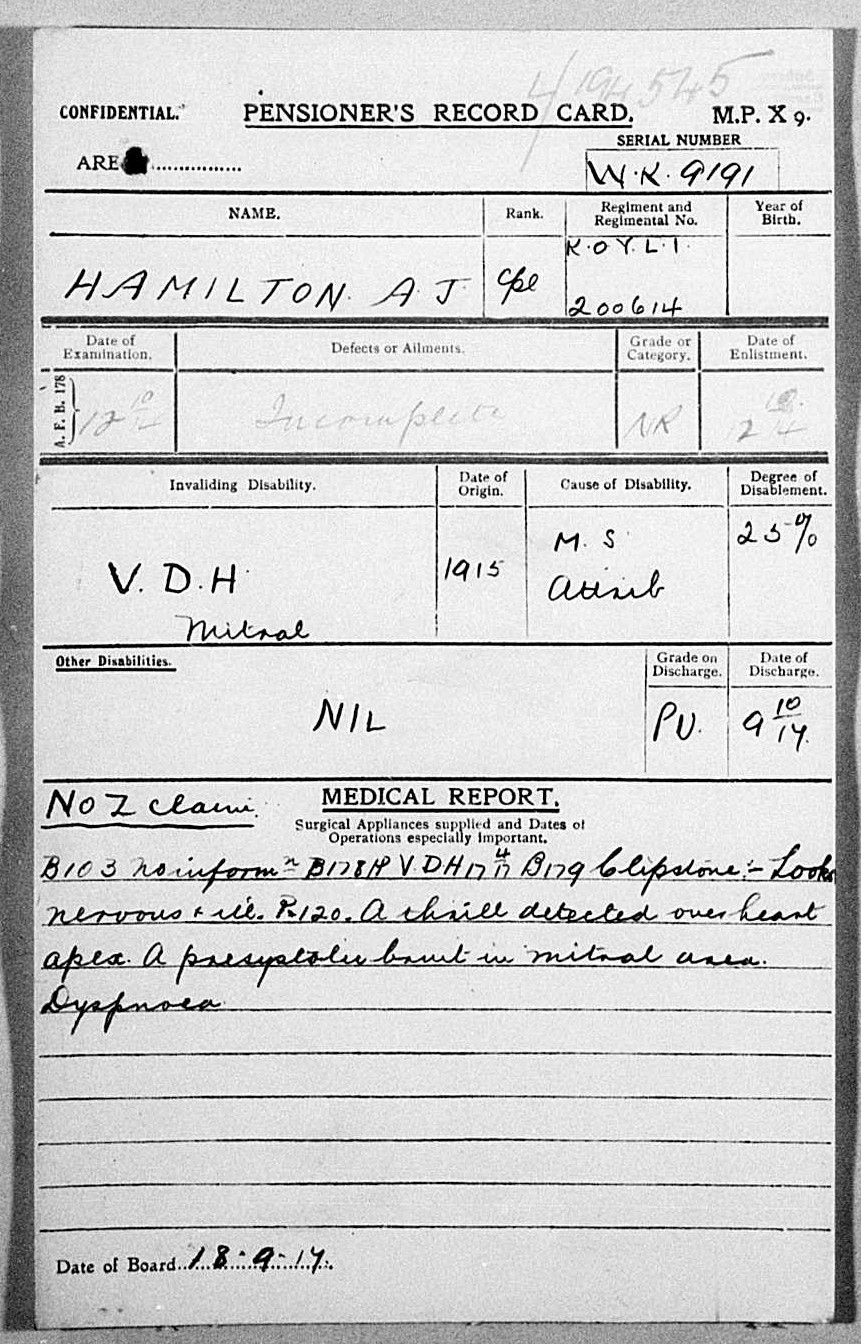 4/194545
CONFIDENTIAL. PENSIONER'S RECORD CARD. M.P. X 9.
SERIAL NUMBER
ARE
W.K. 9191
NAME. Rank. Regiment and Regimental No. Year of Birth.
HAMILTON. A.J. Cpl K.O.Y.L.I.
200614
Date of Examination. Defects or Ailments. Grade or Category. Date of Enlistment.
A. F. B. 178 Incomplete NR
Invaliding Disability. Date of Origin. Cause of Disability. Degree of Disablement.
V.D.H 1915 M.S 25%
Mitral Attrib
Other Disabilities. Grade on Discharge. Date of Discharge.
NIL PU. 9 10/17.
No Z claim. MEDICAL REPORT.
Surgical Appliances supplied and Dates of
Operations especially important.
B103 no inform^n B178A V.D.H 17 4/17 B179 Clipstone:- Looks
nervous + ill. P.120. A thrill detected over heart
apex. A presystolic bruit in mitral area.
Dyspnoea
Date of Board 18.9.17.